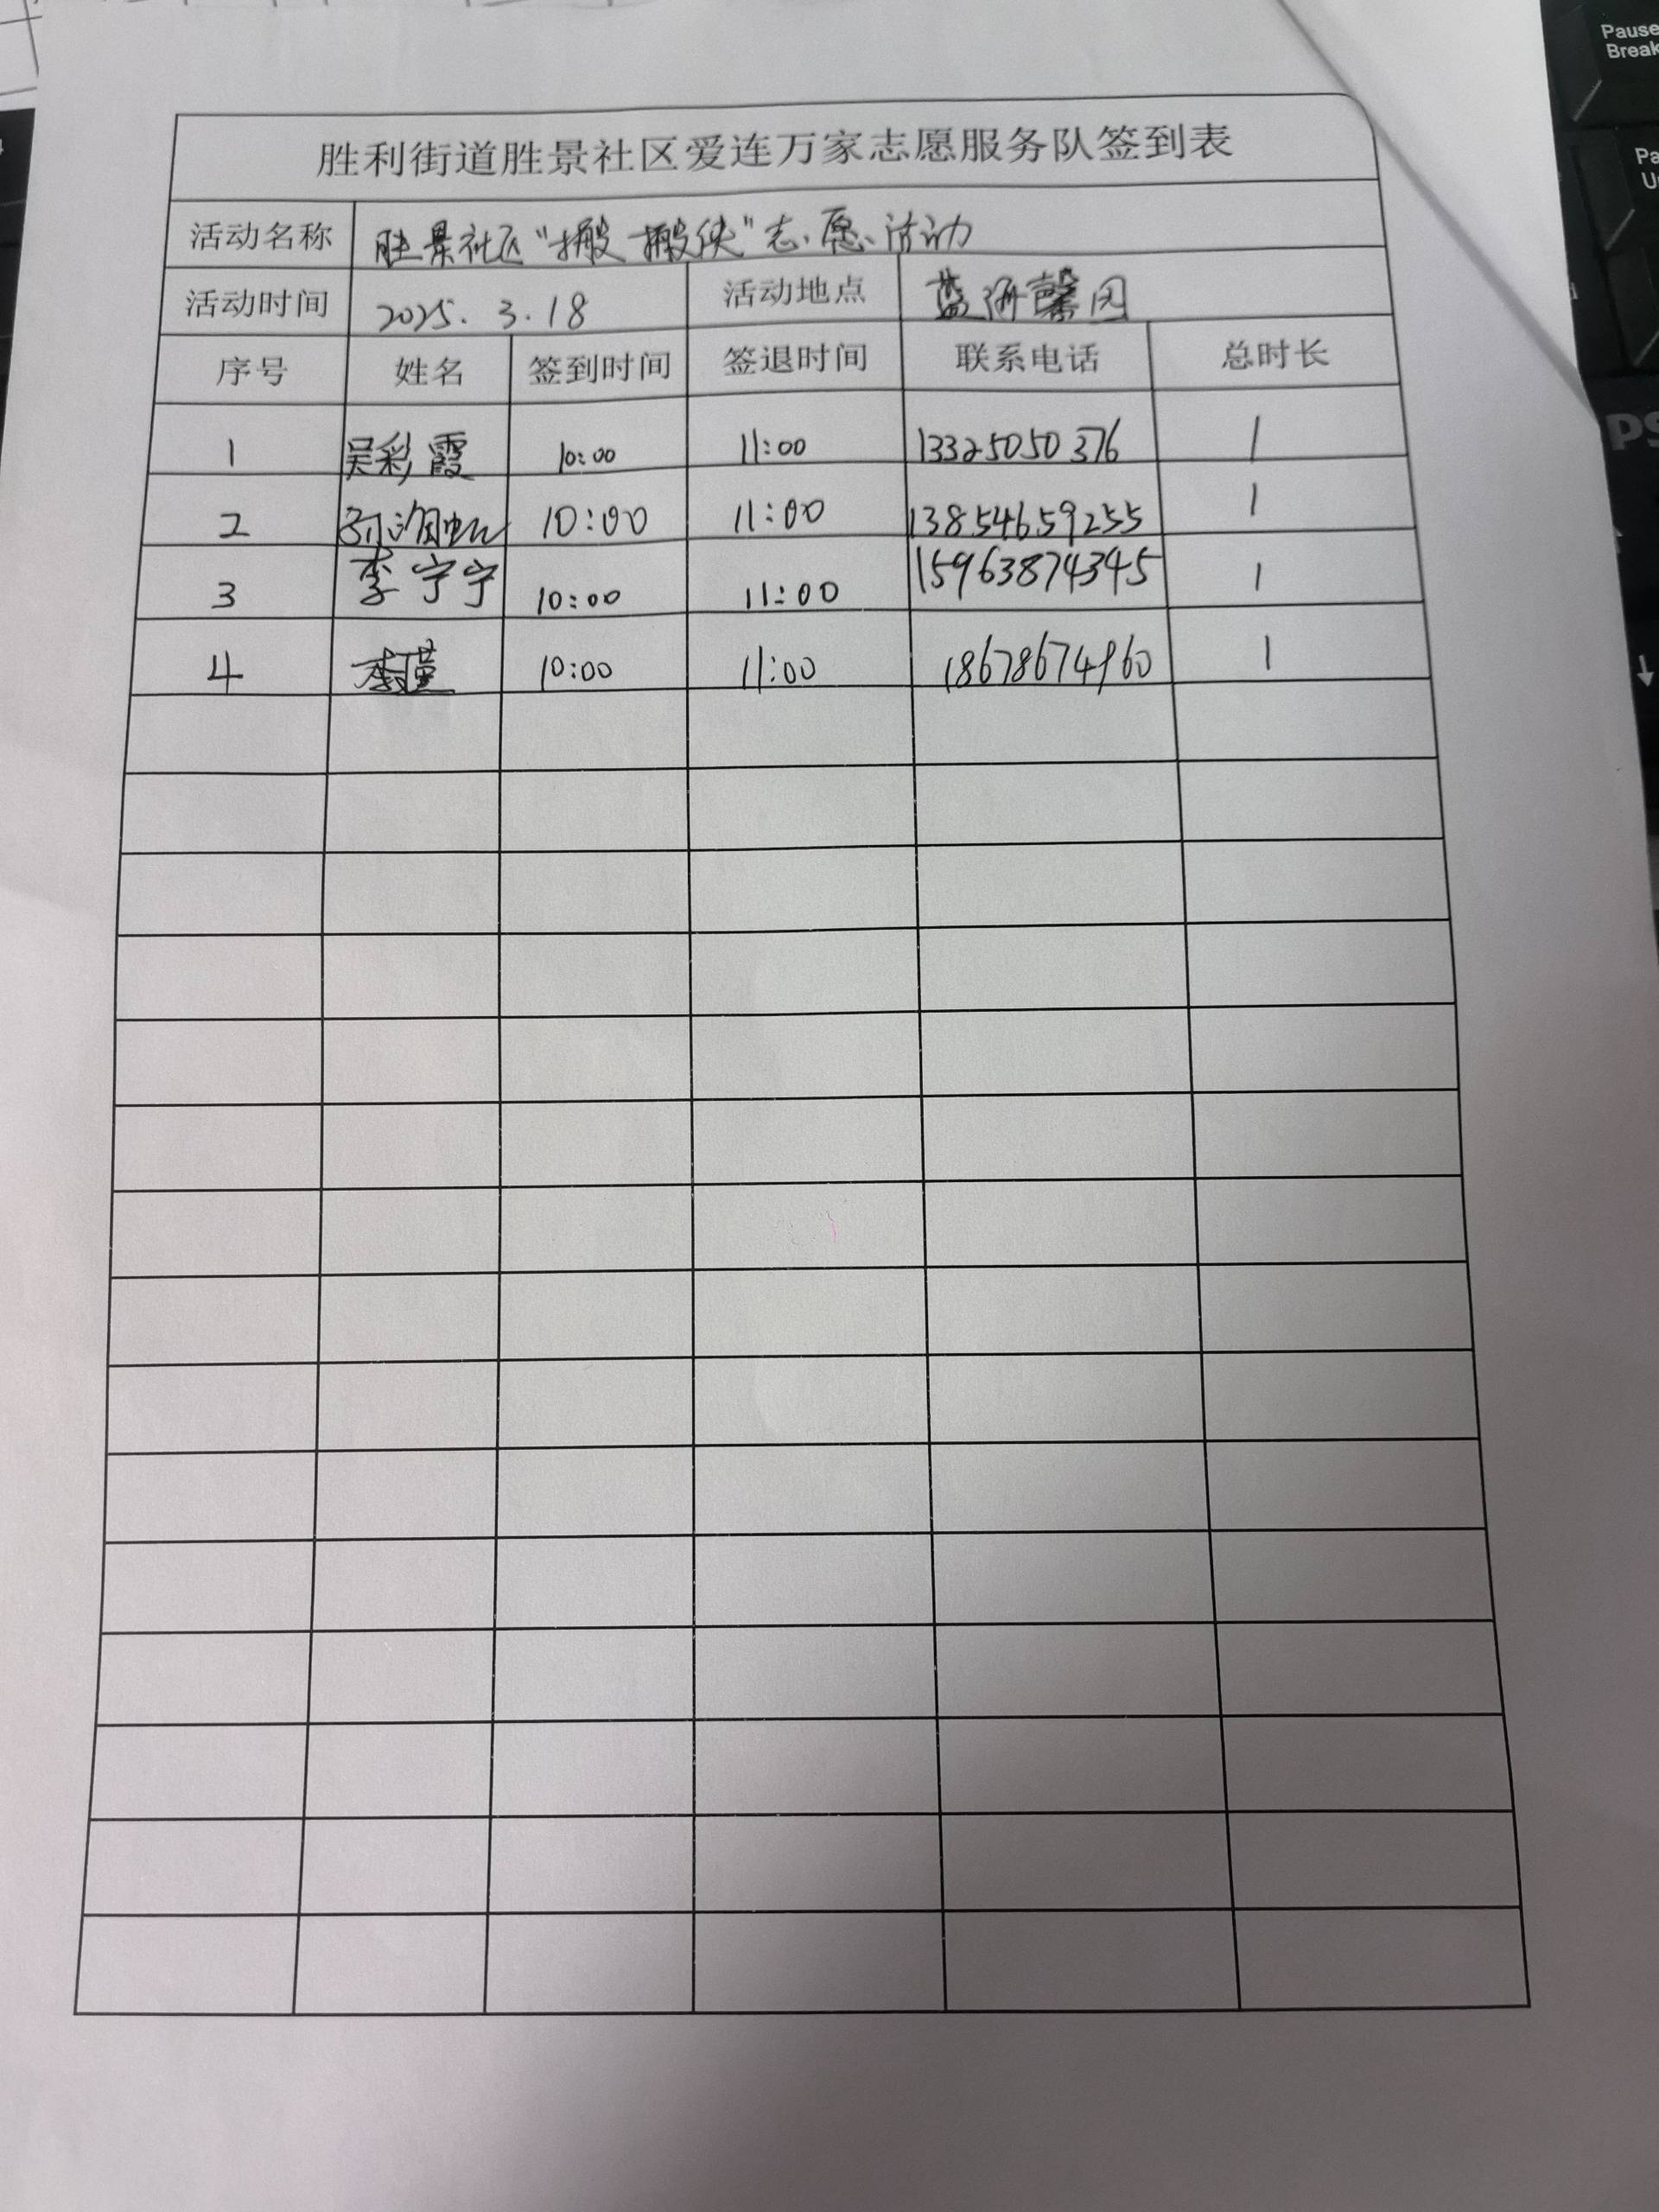 胜利街道胜景社区爱连万家志愿服务队签到表
活动名称 胜景社区“搬搬侠”志愿活动
活动时间 2025.3.18 活动地点 蓝海馨园
序号 姓名 签到时间 签退时间 联系电话 总时长
1 吴彩霞 10:00 11:00 13325050376 1
2 10:00 11:00 13854659255 1
3 李宁宁 10:00 11:00 15963874345 1
4 李瑾 10:00 11:00 18678674960 1
Pause
Break
PS